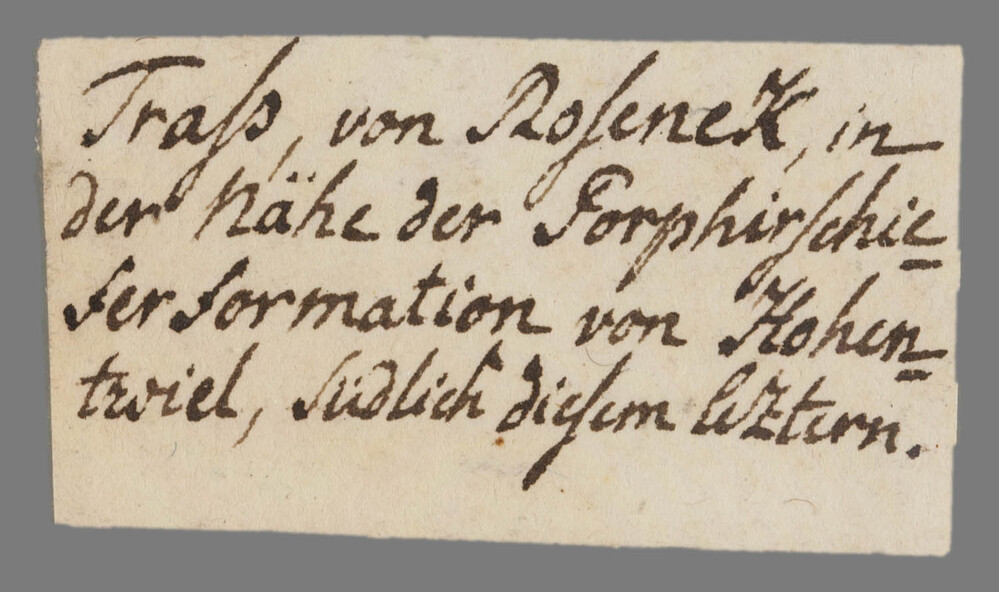 Traß, von RoseneK, in
der Nähe der Porphirschie=
ferformation von Hohen=
twiel, südlich diesem leztern.